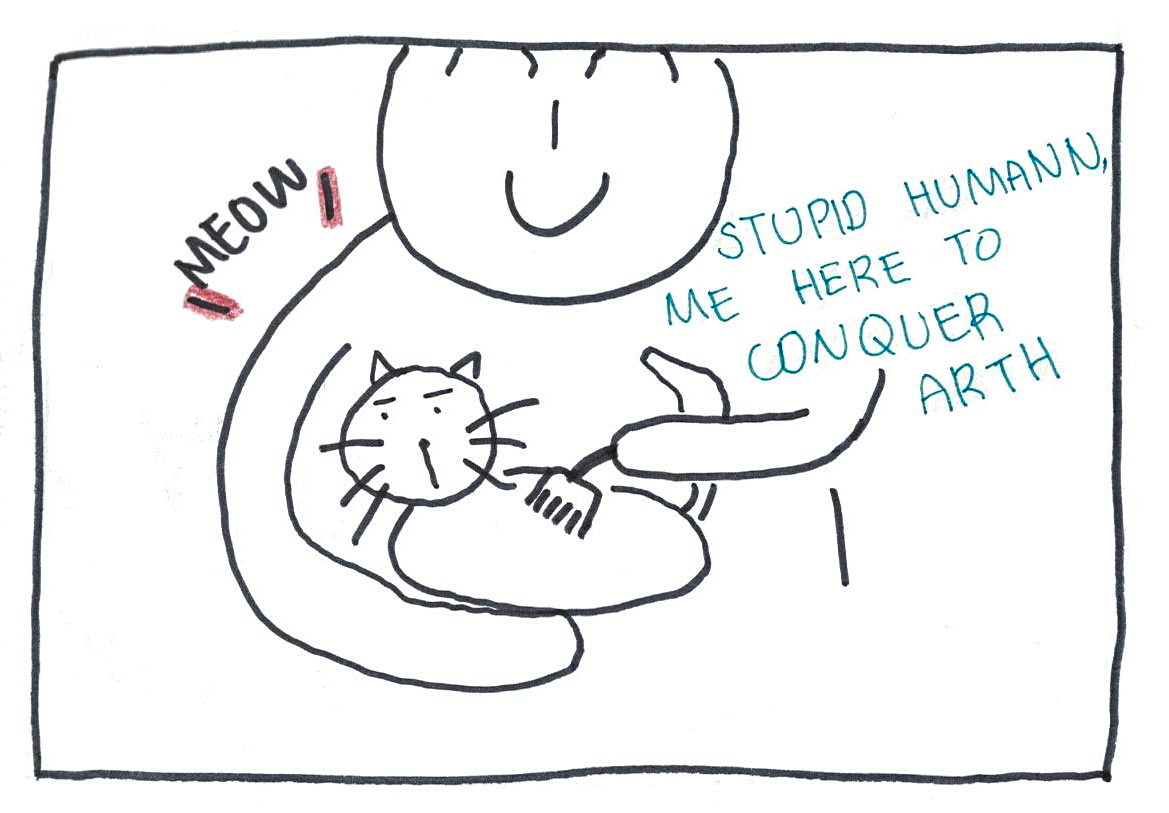 MEOW
STUPID HUMANN,
ME HERE TO
CONQUER
ARTH